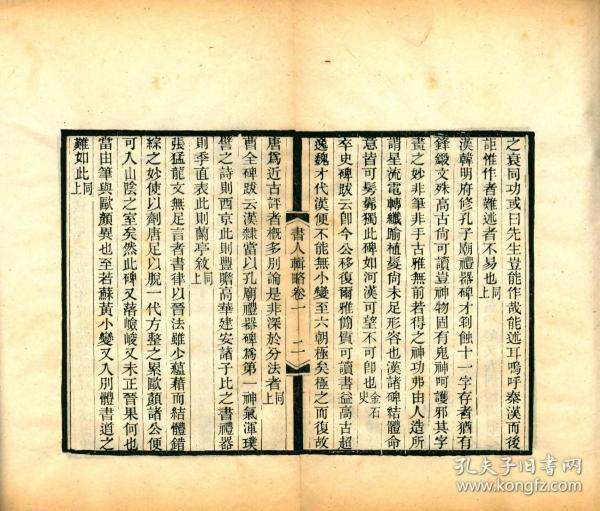 之衰同功或曰先生豈能作哉能述耳嗚呼秦漢而後
詎惟作者難述者不易也同上
漢韓明府修孔子廟禮器碑才剝蝕十一字存者猶有
鋒鍛文殊高古尚可讀豈神物固有鬼神呵護邪其字
畫之妙非筆非手古雅無前若得之神功弗由人造所
謂星流電轉纖踰植髮尚未足形容也漢諸碑結體命
意皆可髣髴獨此碑如河漢可望不可卽也金石史
卒史碑跋云卽今公移復爾雅簡質可讀書益高古超
逸魏才代漢便不能無小變至六朝極矣極之而復故
書人輯略卷一
二
唐爲近古評者槪多別論是非深於分法者同上
曹全碑跋云漢隸當以孔廟禮器碑爲第一神氣渾璞
譬之詩則西京此則豐贍高華建安諸子比之書禮器
則季直表此則蘭亭敘同上
張猛龍文無足言者書律以晉法雖少蘊藉而結體錯
綜之妙使以劑唐足以脫一代方整之累歐顏諸公便
可入山陰之室矣然此碑又落嶮峻又未正晉果何也
當由筆與歐顏異也至若蘇黃小變又入別體書道之
難如此同上
孔夫子旧书网
www.kongfz.com